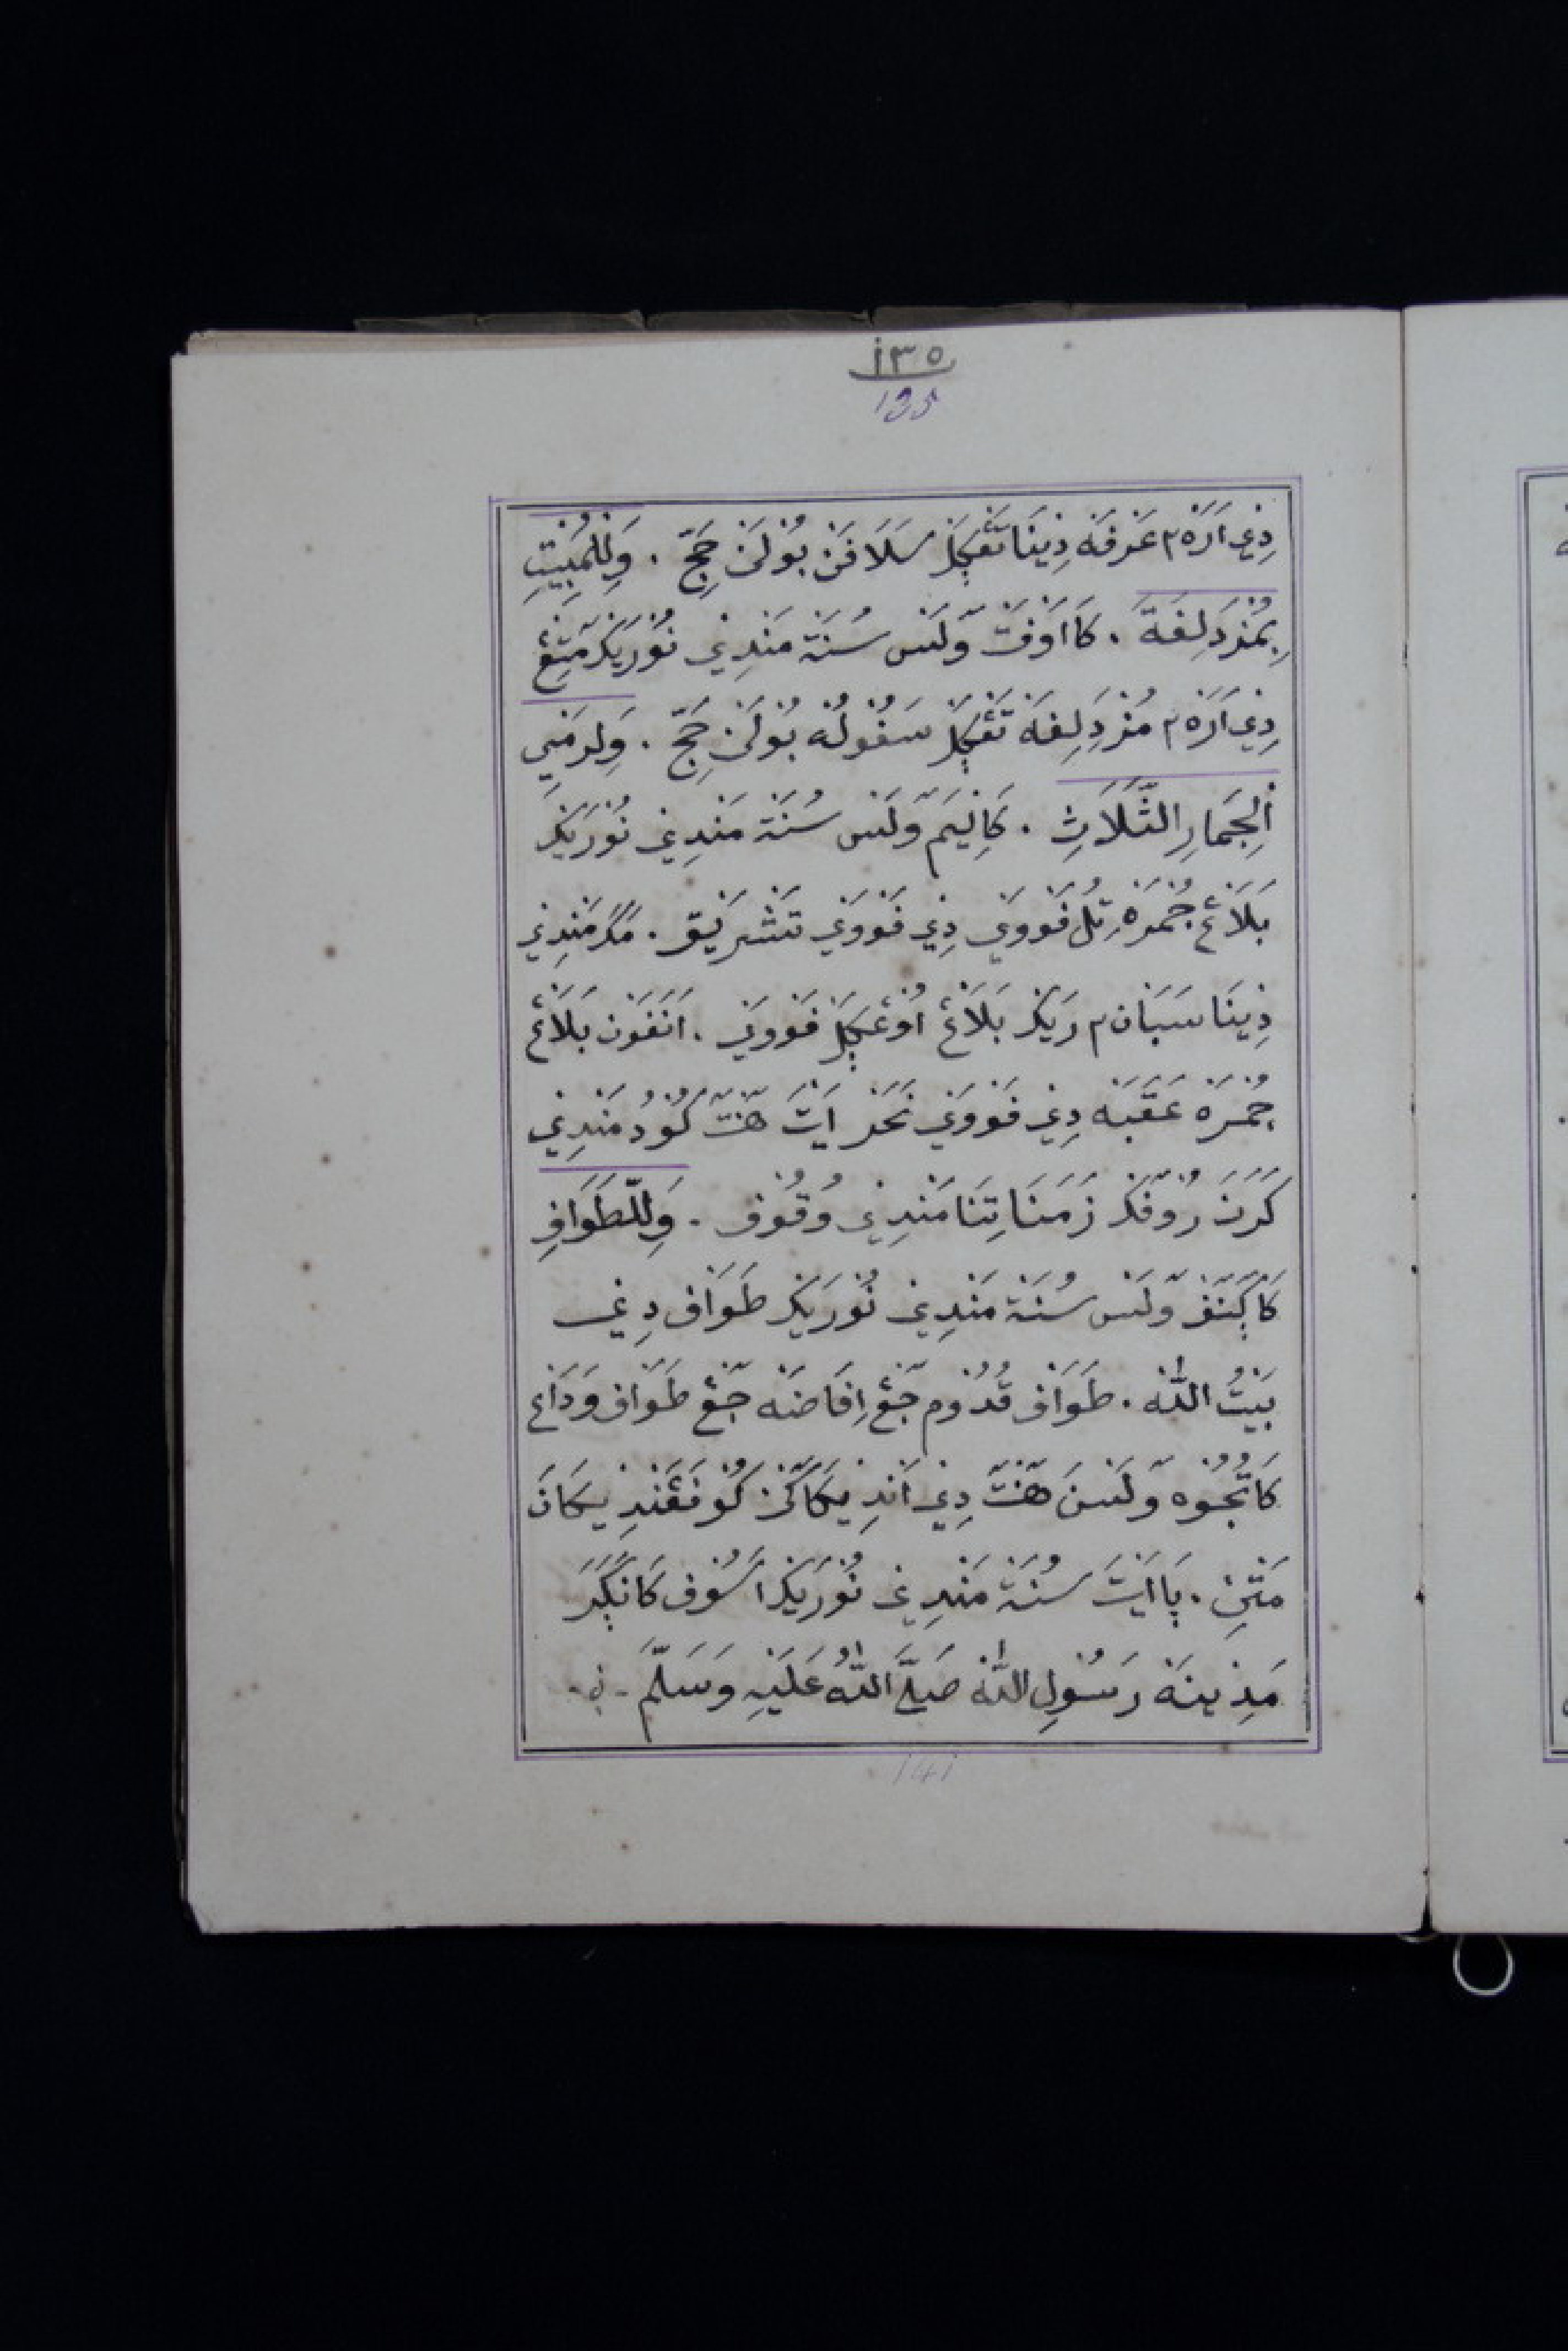 ١٣٥
135
دِيْ اَرَهْ٢ عَرَفَهْ دِيْنَا تَڠْݢَلْ سَلَافَنْ بُوْلَنْ حَجّ . وَلِلْمَبِيْتِ
بِمُزْدَلِفَةَ . كَااَوْفَتْ وَلَسْ سُنَةْ مَنْدِيْ نُوْرَيَكَرْ مَتِڠْ
دِيْ اَرَهْ٢ مُزْدَلِفَهْ تَڠْݢَلْ سَفُوْلُهْ بُوْلَنْ حَجّ . وَلِرَمْيِ
الْجِمَارِ الثَّلَاثِ . كَالِيْمَ وَلَسْ سُنَةْ مَنْدِيْ نُوْرَيَكَرْ
بَلَاڠْ جُمْرَهْ تِلُ فَوْوَيْ دِيْ فَوْوَيْ تَشْرَيْقْ . مَݢَرْ مَنْدِيْ
دِيْنَا سَبَانْ٢ رَيَكَرْ بَلَاڠْ اُوْڠْݢَلْ فَوْوَيْ . اَنَفَوْنْ بَلَاڠْ
جُمْرَهْ عَقَبَهْ دِيْ فَوْوَيْ نَحَرْ اَيْتَ هَنْتَ كُوْدُ مَنْدِيْ
كَرَنَ رُوْفَكَرْ زَمَنَا تِنَا مَنْدِيْ وُقُوْفْ . وَلِلطَّوَافِ
كَاݢَنَفْ وَلَسْ سُنَةْ مَنْدِيْ نُوْرَيَكَرْ طَوَافْ دِيْ
بَيْتُ اللّٰهْ . طَوَافْ قُدُوْمْ جَڠْ اِفَاضَهْ جَڠْ طَوَافْ وَدَاعْ
كَاتُجُوْهْ وَلَسْنَ هَنْتَ دِيْ اَنْدِيْكَاكَنْ كُوْ فَڠَنْدِيْكَانَ
مَتْنِ . ڽَااَيْتَ سُنَةْ مَنْدِيْ نُوْرَيَكَرْ اَسُوْفْ كَانَݢَرَ
مَدِيْنَهْ رَسُوْلِ اللّٰهْ صَلَّى اللّٰهُ عَلَيْهِ وَسَلَّمَ
141